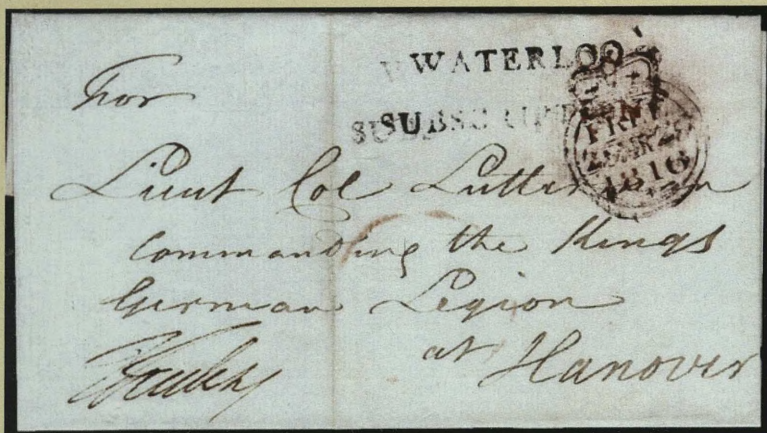 WATERLOO
SUBSCRIPTION
FREE
1816
For
Lieut Col
Commanding the Kings
German Legion
at Hanover